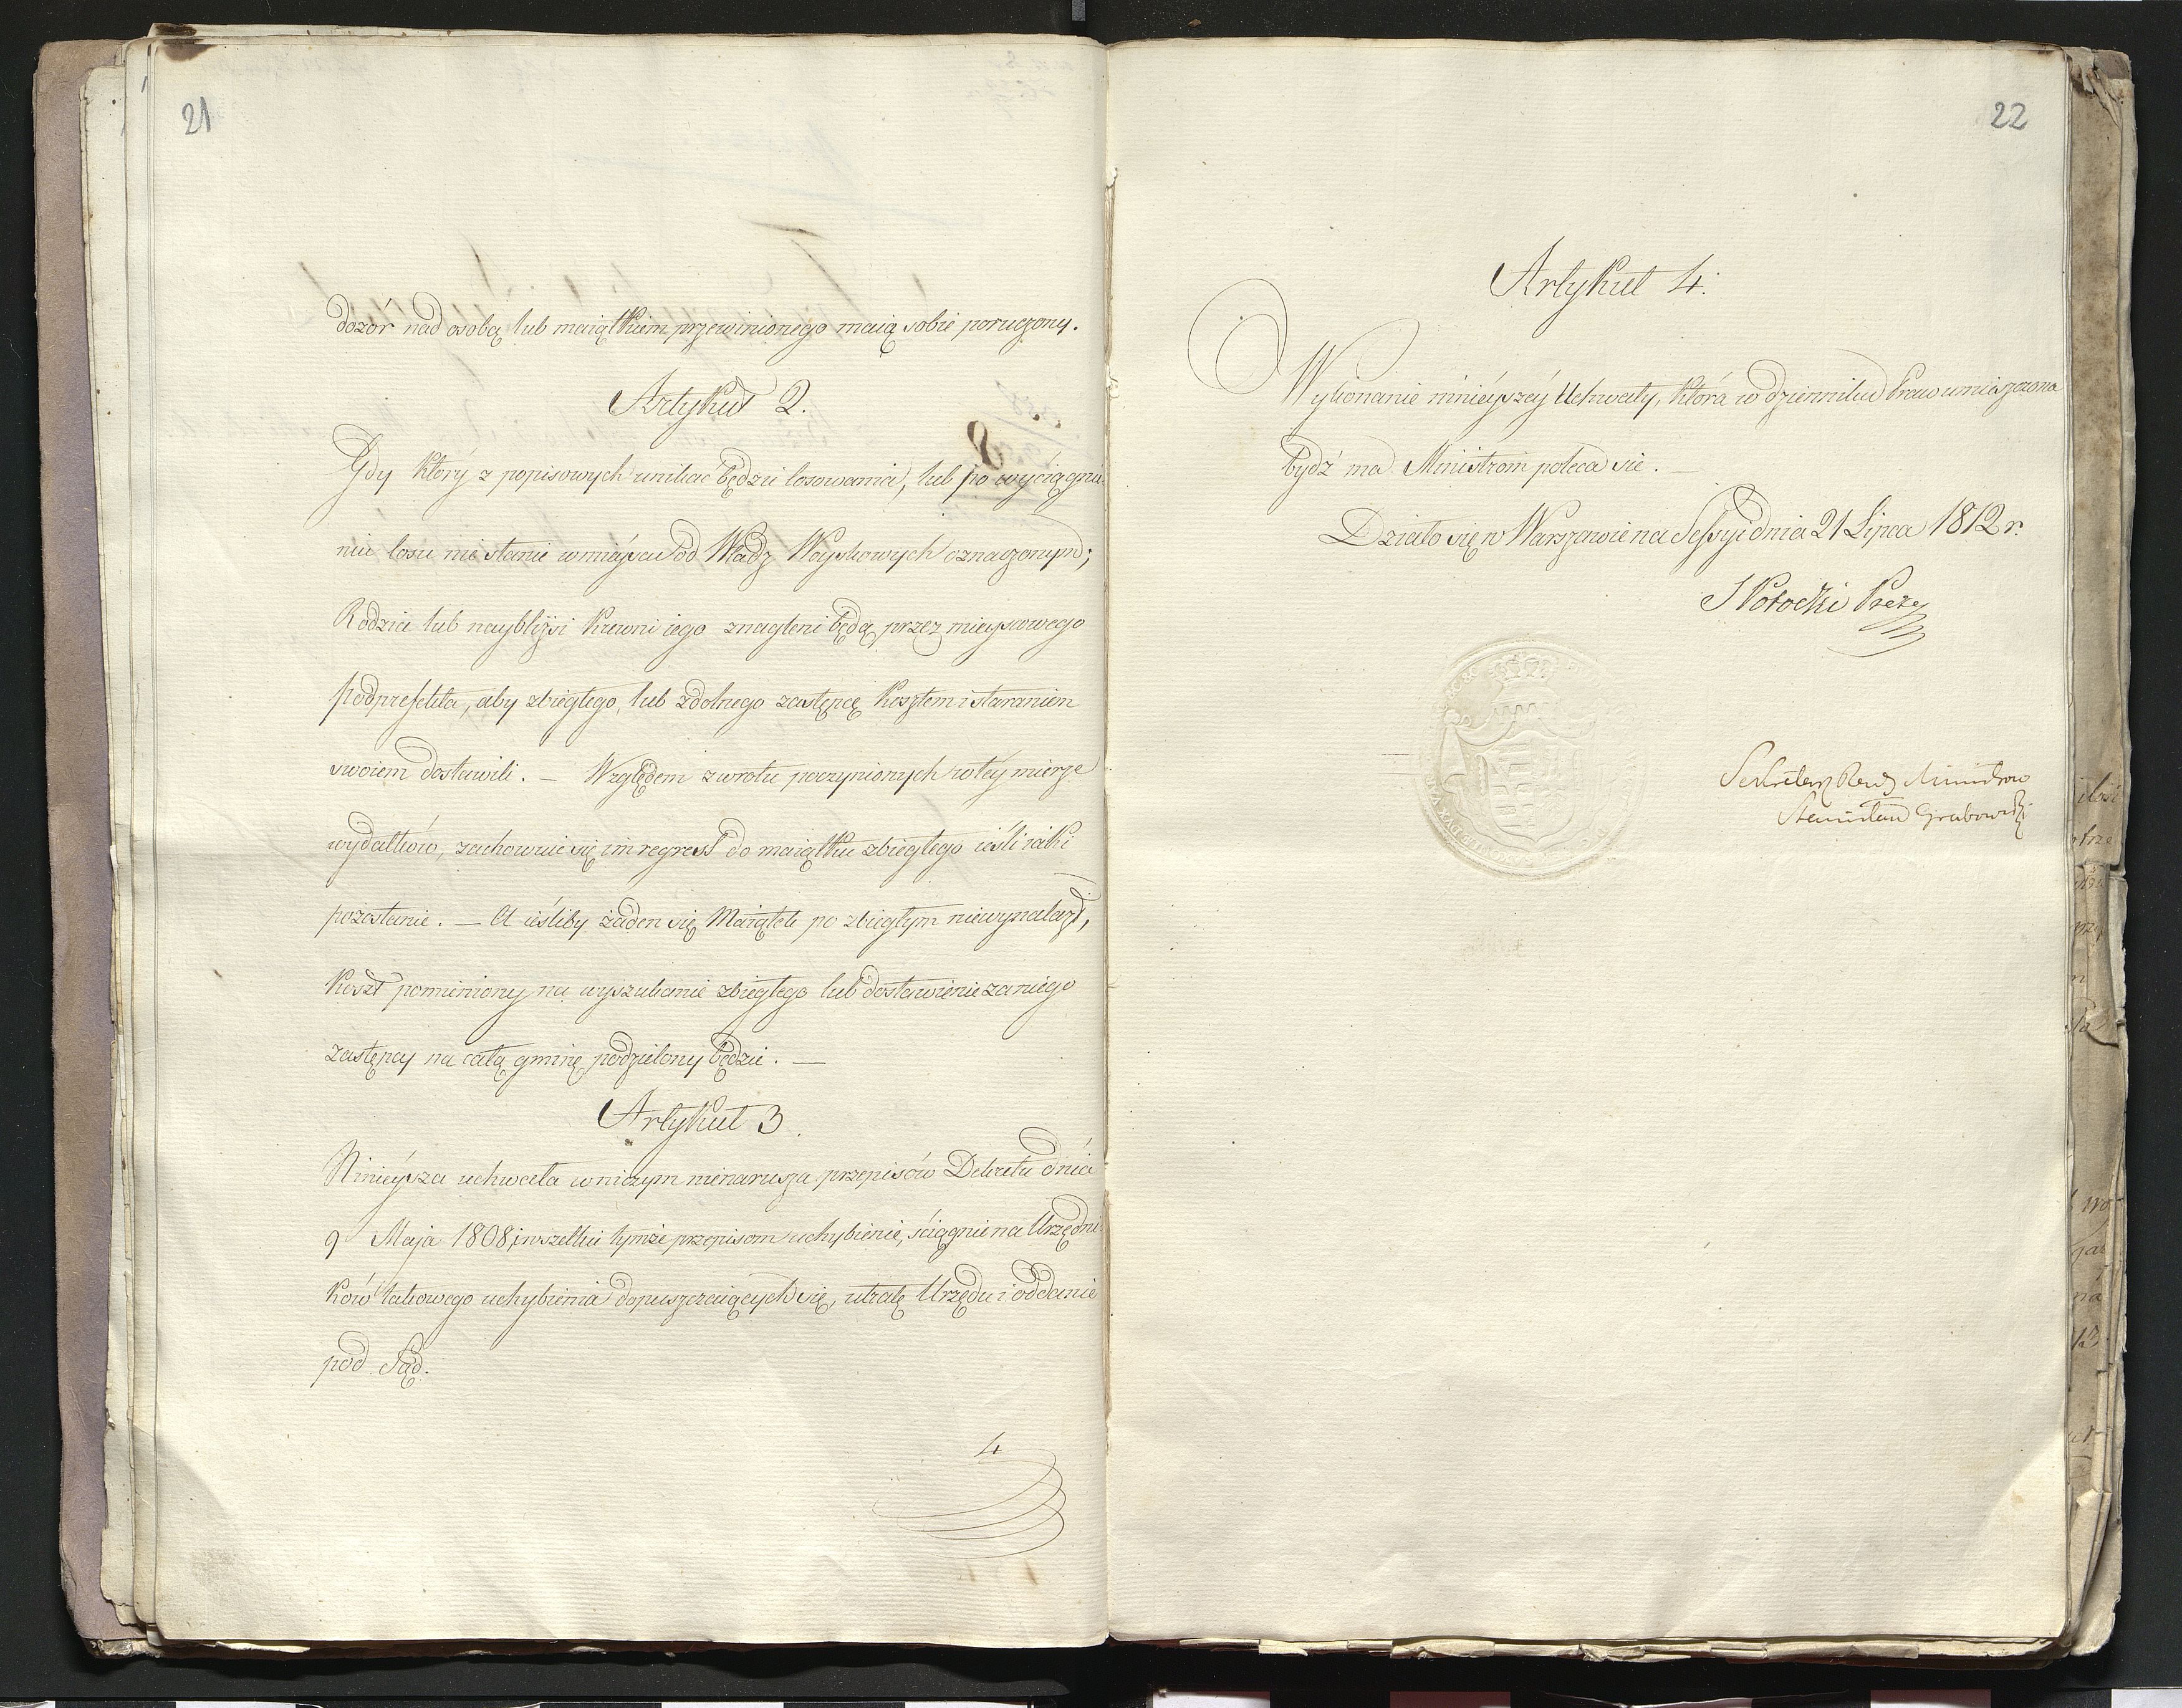 21
dozór nad osobą lub maiątkiem przewinionego maią sobie poruczony.
Artykuł 2.
Gdy który z popisowych unikać będzie losowania, lub po wyciągnie-
niu losu nie stanie w mieyscu od Władz Woyskowych oznaczonym;
Rodzice lub naybliżsi krewni iego znagleni będą przez mieyscowego
Podprefekta, aby zbiegłego, lub zdolnego zastępcę kosztem i staraniem
swoiem dostawili. — Względem zwrotu poczynionych w tey mierze
wydatków, zachowuie się im regress do maiątku zbiegłego ieśli iaki
pozostanie. — A ieśliby żaden się Maiątek po zbiegłym niewynalazł,
koszt pomieniony na wyszukanie zbiegłego lub dostawienie za niego
zastępcy na całą gminę podzielony będzie. —
Artykuł 3.
Ninieysza uchwała w niczym nienarusza przepisów Dekretu dnia
9 Maja 1808, i wszelkie tymże przepisom uchybienie, ściągnie na Urzędni-
ków takowego uchybienia dopuszczaiących się, utratę Urzędu i oddanie
pod Sąd.
4
22
Artykuł 4.
Wykonanie ninieyszey Uchwały, która w dzienniku Praw umieszczona
bydź ma Ministrom poleca się. —
Działo się w Warszawie na Sessyi dnia 21 Lipca 1812 r.
S Potocki Prezes
Sekretarz Rady Ministrow
Stanisław Grabowski